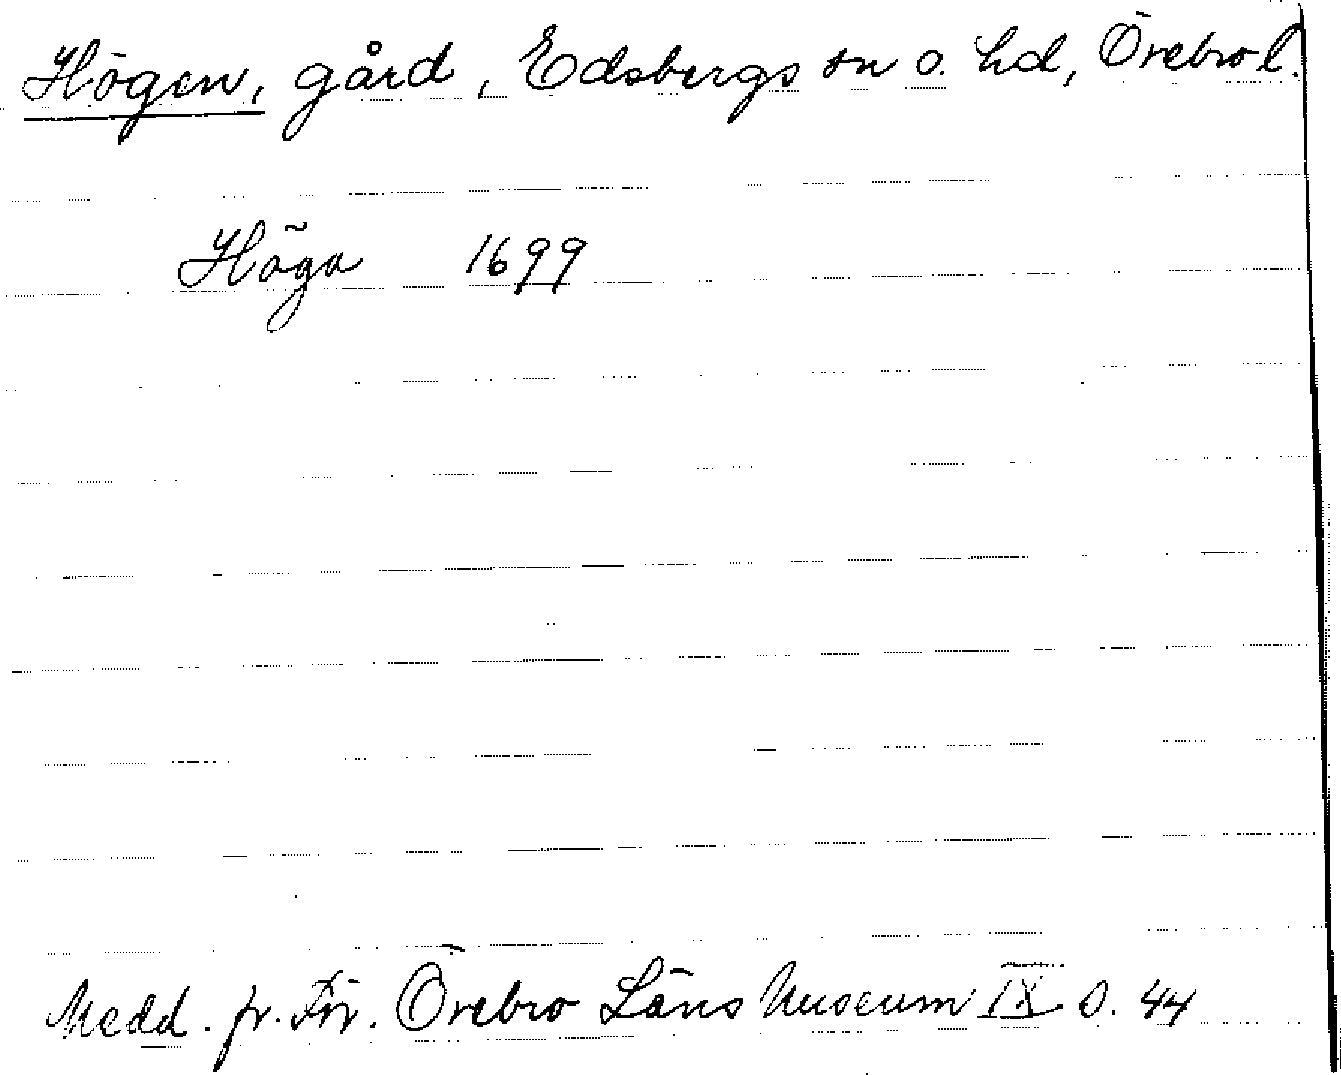 Högen, gård, Edsbergs sn o. hd, Örebro l.
Höga 1699
Medd. fr. För. Örebro Läns Museum IX s. 44